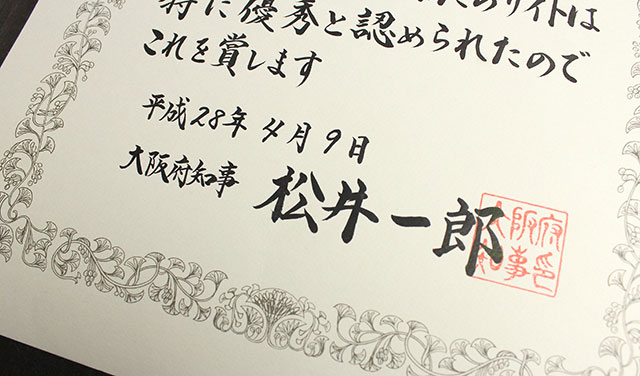 たのサイトは
特に優秀と認められたので
これを賞します
平成28年4月9日
大阪府知事 松井一郎
大阪府知事印